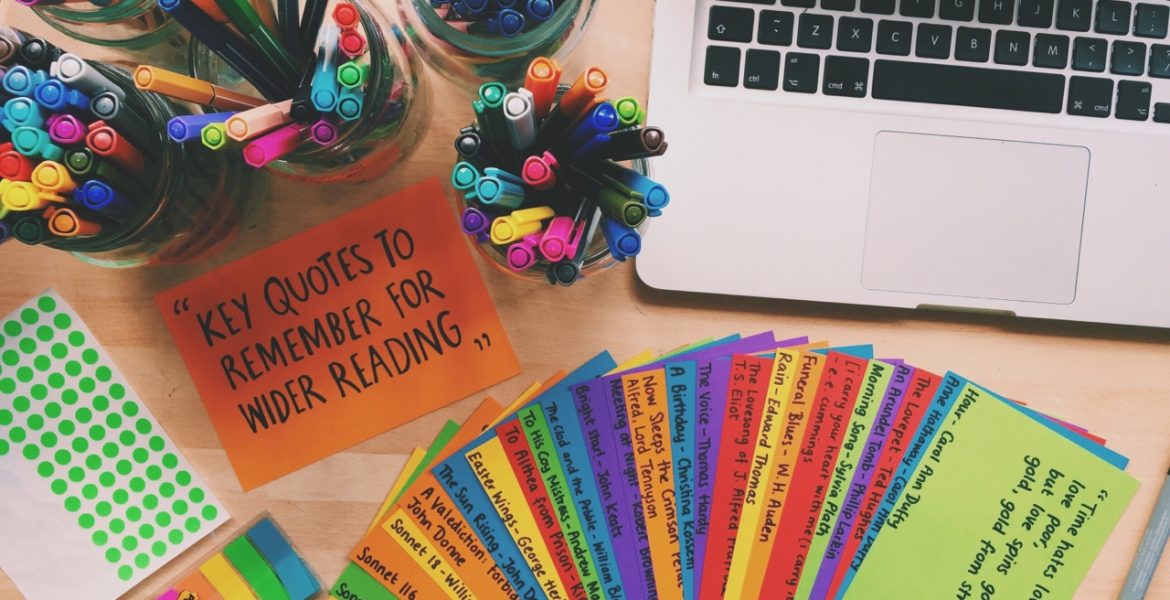 G H J K L : ;
~ ` Z X C V B N M < , > . ? /
fn ctrl alt cmd ⌘ ⌘ cmd alt
“KEY QUOTES TO
REMEMBER FOR
WIDER READING”
Sonnet 116
Sonnet 18 - Willi
A Valediction: Forbid
John Donne
The Sun Rising - John Do
Easter Wings - George Her
To Althea from Prison -
To His Coy Mistress - Andrew Ma
The Clod and the Pebble - William Bl
Bright Start - John Keats
Meeting at Night - Robert Browning
Now Sleeps the Crimson Petal
Alfred, Lord Tennyson
A Birthday - Christina Rossetti
The Voice - Thomas Hardy
The Lovesong of J. Alfred Pruf
T.S. Eliot
Rain - Edward Thomas
Funeral Blues - W. H. Auden
[i carry your heart with me(i carry
- e.e cummings
Morning Song - Sylvia Plath
An Arundel Tomb - Philip Larkin
The Lovepet - Ted Hughes
Anne Hathaway - Carol Ann Duffy
Hour - Carol Ann Duffy
“Time hates lo
love poor,
but love spins go
gold, gold from st